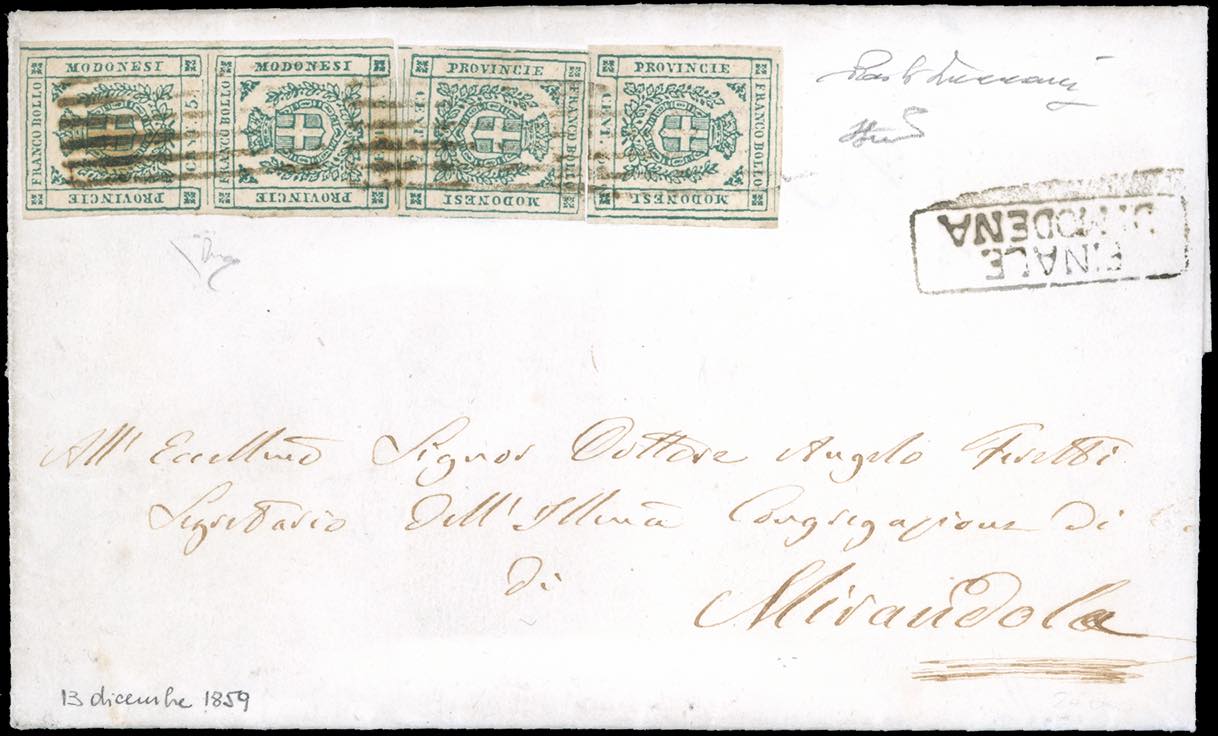 MODONESI
FRANCO BOLLO
CENT. 5.
PROVINCIE
MODONESI
FRANCO BOLLO
PROVINCIE
PROVINCIE
FRANCO BOLLO
MODONESI
PROVINCIE
FRANCO BOLLO
MODONESI
FINALE
DI MODENA
All' Eccellmo Signor Dottore Angelo
Segretario Dell' Illma Congregazione Di
di
Mirandola
13 dicembre 1859